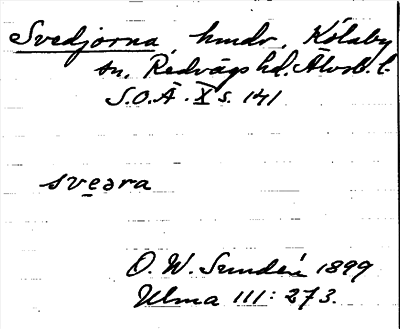 Svedjorna, hmdr, Kölaby
sn, Redvägs hd. Älvsb. l.
S.O.Ä. X s. 141
sveara
O. W. Sundén 1899
Ulma 111: 273.